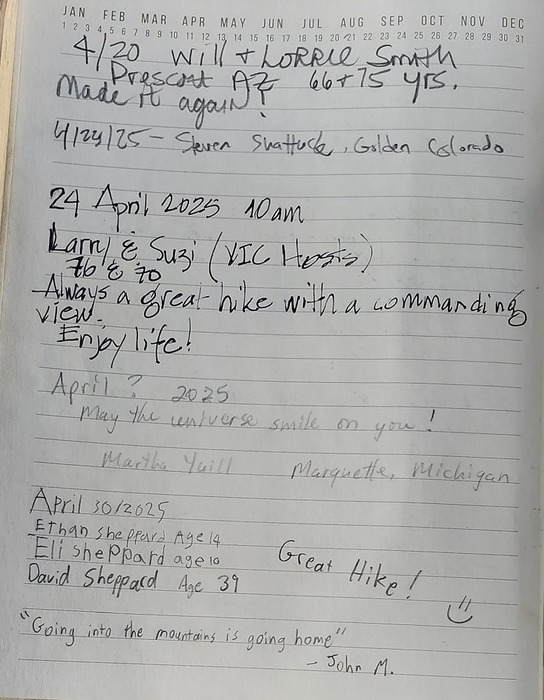 JAN FEB MAR APR MAY JUN JUL AUG SEP OCT NOV DEC
1 2 3 4 5 6 7 8 9 10 11 12 13 14 15 16 17 18 19 20 21 22 23 24 25 26 27 28 29 30 31
4/20 Will + LORRIE Smith
Prescott AZ 66+75 yrs.
Made it again!
4/24/25 - Steven Shattuck, Golden Colorado
24 April 2025 10am
Larry & Suzi (VIC Hosts)
76 & 70
Always a great hike with a commanding
view.
Enjoy life!
April ? 2025
May the universe smile on you!
Martha Marquette, Michigan
April 30/2025
Ethan Sheppard Age 14
Eli Sheppard age 10
David Sheppard Age 39
Great Hike!
"Going into the mountains is going home"
- John M.